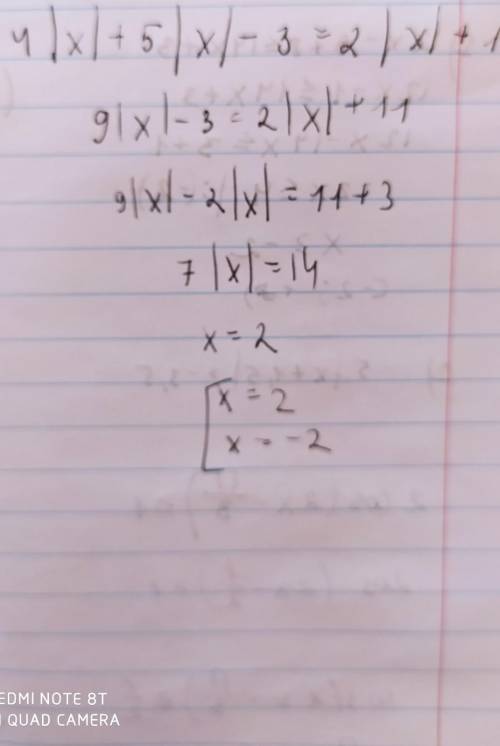 4|x| + 5|x| - 3 = 2|x| + 1
9|x| - 3 = 2|x| + 11
9|x| - 2|x| = 11 + 3
7|x| = 14
x = 2
[x = 2
x = -2
REDMI NOTE 8T
AI QUAD CAMERA